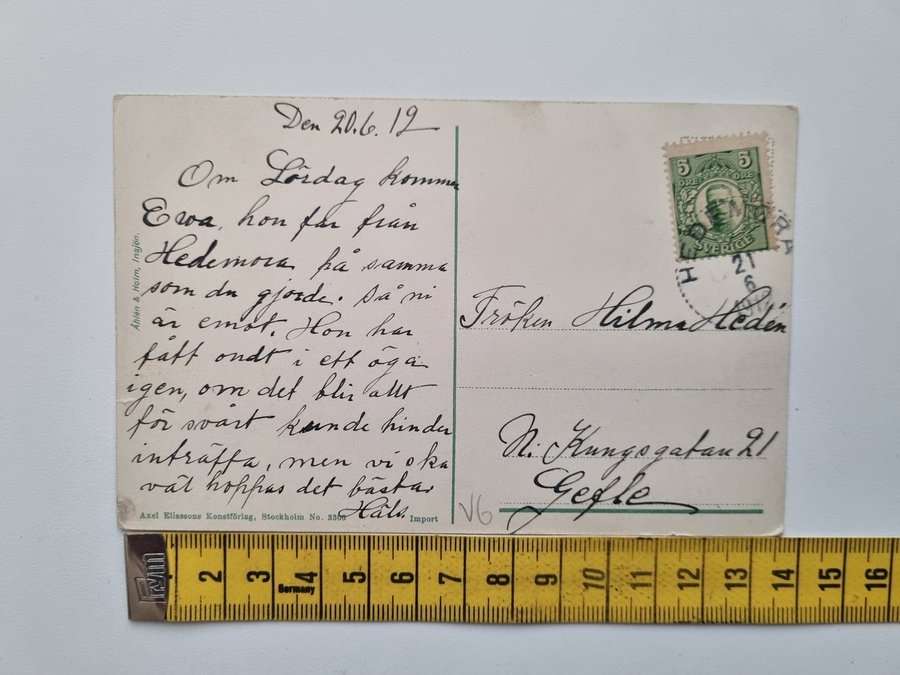 Den 20.6.12
Om Lördag kommer
Ewa, hon far från
Hedemora på samma
som du gjorde. Så ni
är emot. Hon har
fått ondt i ett öga
igen, om det blir allt
för svårt kunde hinder
inträffa, men vi ska
väl hoppas det bästa
Häls.
Åhlén & Holm, Insjön.
Axel Eliassons Konstförlag, Stockholm No. 3300
Import
5 5
ÖRE ÖRE
SVERIGE
HEDEMORA
21
6
Fröken Hilma Hedén
N. Kungsgatan 21
Gefle
V6
2 3 4 5 6 7 8 9 10 11 12 13 14 15 16
Germany